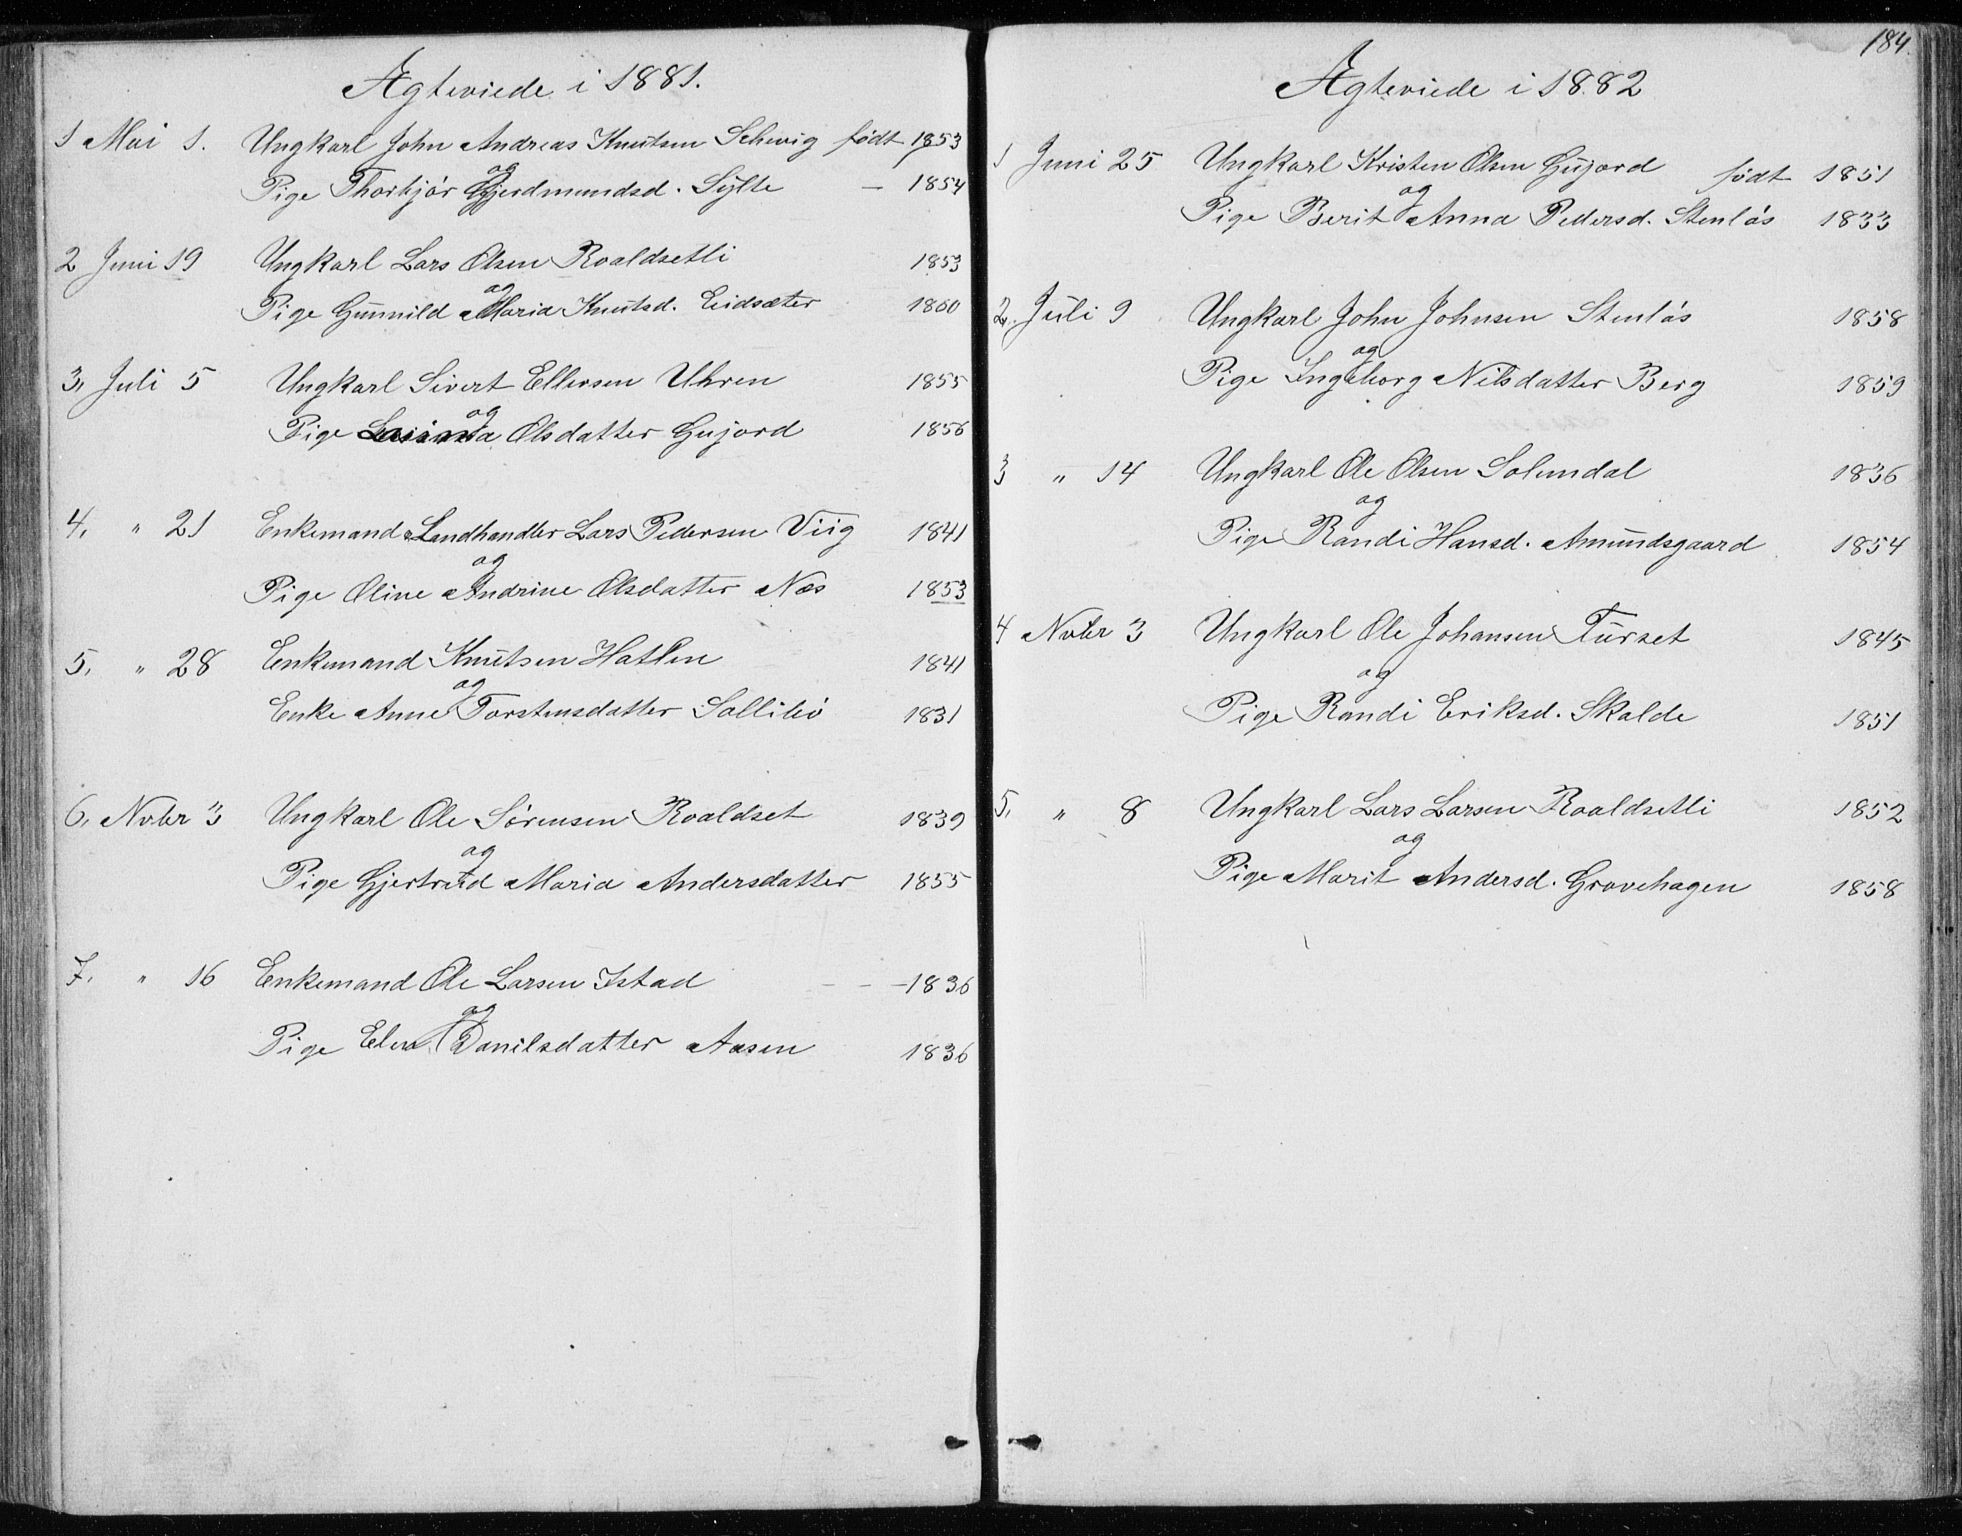 Ægteviede i 1881.
1 Mai 1. Ungkarl John Andreas Knutsen Schevig født 1853
og
Pige Thorbjør Gjerdmundsd. Sylte — 1854
2 Juni 19 Ungkarl Lars Olsen Roaldsetli 1853
og
Pige Gunnild Maria Knutsd. Eidsæter 1860
3, Juli 5 Ungkarl Sivert Ellersen Uhren 1855
og
Pige Olsdatter Gujord 1856
4, " 21 Enkemand Landhandler Lars Pedersen Viig 1841
og
Pige Oline Andrine Olsdatter Næs 1853
5, " 28 Enkemand Knutsen Hatlen 1841
og
Enke Anne Torstensdatter Sollibø 1831
6, Novbr 3 Ungkarl Ole Sörensen Roaldset 1839
og
Pige Gjertrud Maria Andersdatter 1855
7, " 16 Enkemand Ole Larsen Istad - - - 1836
og
Pige Elen Danilsdatter Aasen 1836
184.
Ægteviede i 1882
1 Juni 25 Ungkarl Kristen Olsen Gujord født 1851
og
Pige Berit Anna Pedersd. Stenløs 1833
2, Juli 9 Ungkarl John Johnsen Stenløs 1858
og
Pige Ingeborg Nilsdatter Berg 1859
3 " 14 Ungkarl Ole Olsen Solemdal 1836
og
Pige Randi Hansd. Amundsgaard 1854
4 Novbr 3 Ungkarl Ole Johansen Furset 1845
og
Pige Randi Eriksd. Skalde 1851
5, " 8 Ungkarl Lars Larsen Roaldsetli 1852
og
Pige Marit Andersd. Grovehagen 1858